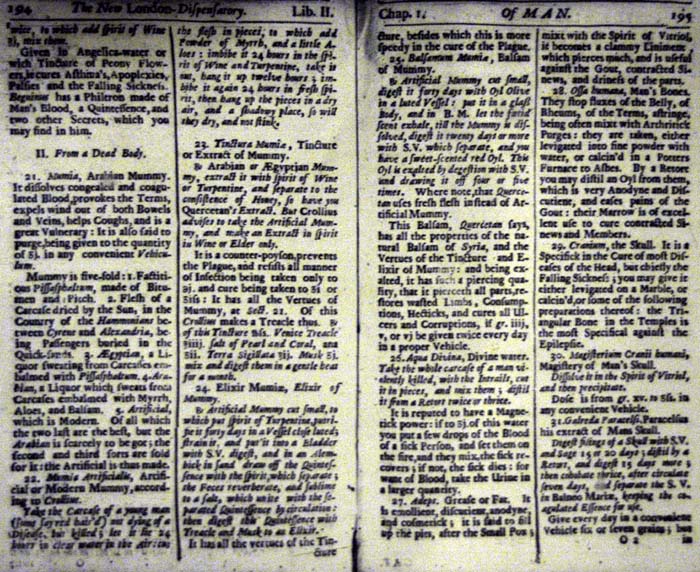 194 The New London-Dispensatory. Lib. II.
wise, to which add spirit of Wine
℥j, mix them.
Given in Angelica-water or
with Tincture of Peony Flow-
ers, it cures Asthma's, Apoplexies,
Palsies and the Falling Sickness.
Beguinus has a Philtron made of
Man's Blood, a Quintessence, and
two other Secrets, which you
may find in him.
II. From a Dead Body.
21. Mumia, Arabian Mummy.
It dissolves congealed and coagu-
lated Blood, provokes the Terms,
expels wind out of both Bowels
and Veins, helps Coughs, and is a
great Vulnerary: It is also said to
purge, being given to the quantity
of ʒij. in any convenient Vehicu-
lum.
Mummy is five-fold: 1. Factiti-
ous Pissasphaltum, made of Bitu-
men and Pitch. 2. Flesh of a
Carcase dryed by the Sun, in the
Country of the Hammonians be-
tween Cyrene and Alexandria, be-
ing Passengers buried in the
Quick-sands. 3. Ægyptian, a Li-
quor sweating from Carcases em-
balmed with Pissasphaltum. 4. Ara-
bian, a Liquor which sweats from
Carcases embalmed with Myrrh,
Aloes, and Balsam. 5. Artificial,
which is Modern. Of all which
the two last are the best, but the
Arabian is scarcely to be got; the
second and third sorts are sold
for it: the Artificial is thus made.
22. Mumia Artificialis, Artifi-
cial or Modern Mummy, accord-
ing to Crollius.
Take the Carcase of a young man
(some say red hair'd) not dying of a
Disease, but killed; let it lie 24
hours in clear water in the Air: cut
the flesh in pieces, to which add
Powder of Myrrh, and a little A-
loes: imbibe it 24 hours in the spi-
rit of Wine and Turpentine, take it
out, hang it up twelve hours; im-
bibe it again 24 hours in fresh spi-
rit, then hang up the pieces in a dry
air, and a shadowy place, so will
they dry, and not stink.
23. Tinctura Mumiæ, Tincture
or Extract of Mummy.
℞ Arabian or Ægyptian Mum-
my, extract it with spirit of Wine
or Turpentine, and separate to the
consistence of Honey, so have you
Quercetan's Extract. But Crollius
advises to take the Artificial Mum-
my, and make an Extract in spirit
of Wine or Elder only.
It is a counter-poyson, prevents
the Plague, and resists all manner
of Infection being taken only to
ʒj. and cure being taken to ʒi or
ʒiß: It has all the Vertues of
Mummy, at Sect. 21. Of this
Crollius makes a Treacle thus. ℞
of this Tincture ℥iß. Venice Treacle
℥iiij. Salt of Pearl and Coral, ana
ʒij. Terra Sigillata ℥ij. Musk ʒj.
mix and digest them in a gentle heat
for a month.
24. Elixir Mumiæ, Elixir of
Mummy.
℞ Artificial Mummy cut small, to
which put spirit of Turpentine, putri-
fie it forty days in a Vessel close luted,
strain it, and put it into a Bladder
with S.V. digest, and in an Alem-
bick in sand draw off the Quintes-
sence with the spirit, which separate;
the Fæces reverberate, and sublime
to a salt, which unite with the se-
parated Quintessence by circulation:
then digest this Quintessence with
Treacle and Musk to an Elixir.
It has all the vertues of the Tin-
cture
Chap. 1. Of MAN. 195
cture, besides which this is more
speedy in the cure of the Plague.
25. Balsamum Mumiæ, Balsam
of Mummy.
℞ Artificial Mummy cut small,
digest it forty days with Oyl Olive
in a luted Vessel: put it in a glass
Body, and in B. M. let the fœtid
scent exhale, till the Mummy is dis-
solved, digest it twenty days or more
with S.V. which separate, and you
have a sweet-scented red Oyl. This
Oyl is exalted by digestion with S.V.
and drawing it off four or five
times. Where note, that Querce-
tan uses fresh flesh instead of Ar-
tificial Mummy.
This Balsam, Quercetan says,
has all the properties of the na-
tural Balsam of Syria, and the
Vertues of the Tincture and E-
lixir of Mummy: and being ex-
alted, it has such a piercing qua-
lity, that it pierceth all parts, re-
stores wasted Limbs, Consump-
tions, Hecticks, and cures all Ul-
cers and Corruptions, if gr. iiij,
v, or vj be given twice every day
in a proper Vehicle.
26. Aqua Divina, Divine water.
Take the whole carcase of a man vi-
olently killed, with the Intrails, cut
it in pieces, and mix them; distil
it from a Retort twice or thrice.
It is reputed to have a Magne-
tick power: if to ʒj. of this water
you put a few drops of the Blood
of a sick Person, and set them on
the fire, and they mix, the sick re-
covers; if not, the sick dies: for
want of Blood, take the Urine in
a larger quantity.
27. Adeps, Grease or Fat. It
is emollient, discutient, anodyne,
and cosmetick; it is said to fill
up the pits, after the Small Pox;
mixt with the Spirit of Vitriol,
it becomes a clammy Liniment
which pierces much, and is useful
against the Gout, contracted Si-
news, and driness of the parts.
28. Ossa humana, Man's Bones.
They stop fluxes of the Belly, of
Rheums, of the Terms, astringe,
being often mixt with Arthritick
Purges: they are taken, either
levigated into fine powder with
water, or calcin'd in a Potters
Furnace to Ashes. By a Retore
you may distil an Oyl from them,
which is very Anodyne and Dis-
cutient, and eases pains of the
Gout: their Marrow is of excel-
lent use to cure contracted Si-
news and Members.
29. Cranium, the Skull. It is a
Specifick in the Cure of most Dis-
eases of the Head, but chiefly the
Falling Sickness; you may give it
either levigated on a Marble, or
calcin'd, or some of the following
preparations thereof: the Tri-
angular Bone in the Temples is
the most Specifical against the
Epilepsie.
30. Magisterium Cranii humani,
Magistery of Man's Skull.
Dissolve it in the Spirit of Vitriol,
and then precipitate.
Dose is from gr. xv. to ʒß. in
any convenient Vehicle.
31. Galreda Paracelsi, Paracelsus
his Extract of Mans Skull.
Digest filings of a Skull with S.V.
and Sage 15 or 20 days; distil by a
Retort, and digest 15 days more;
then cohobate thrice, after circulate
seven days, and separate the S.V.
in Balneo Mariæ, keeping the co-
agulated Essence for use.
Give every day in a convenient
Vehicle six or seven grains; but
O 2 in